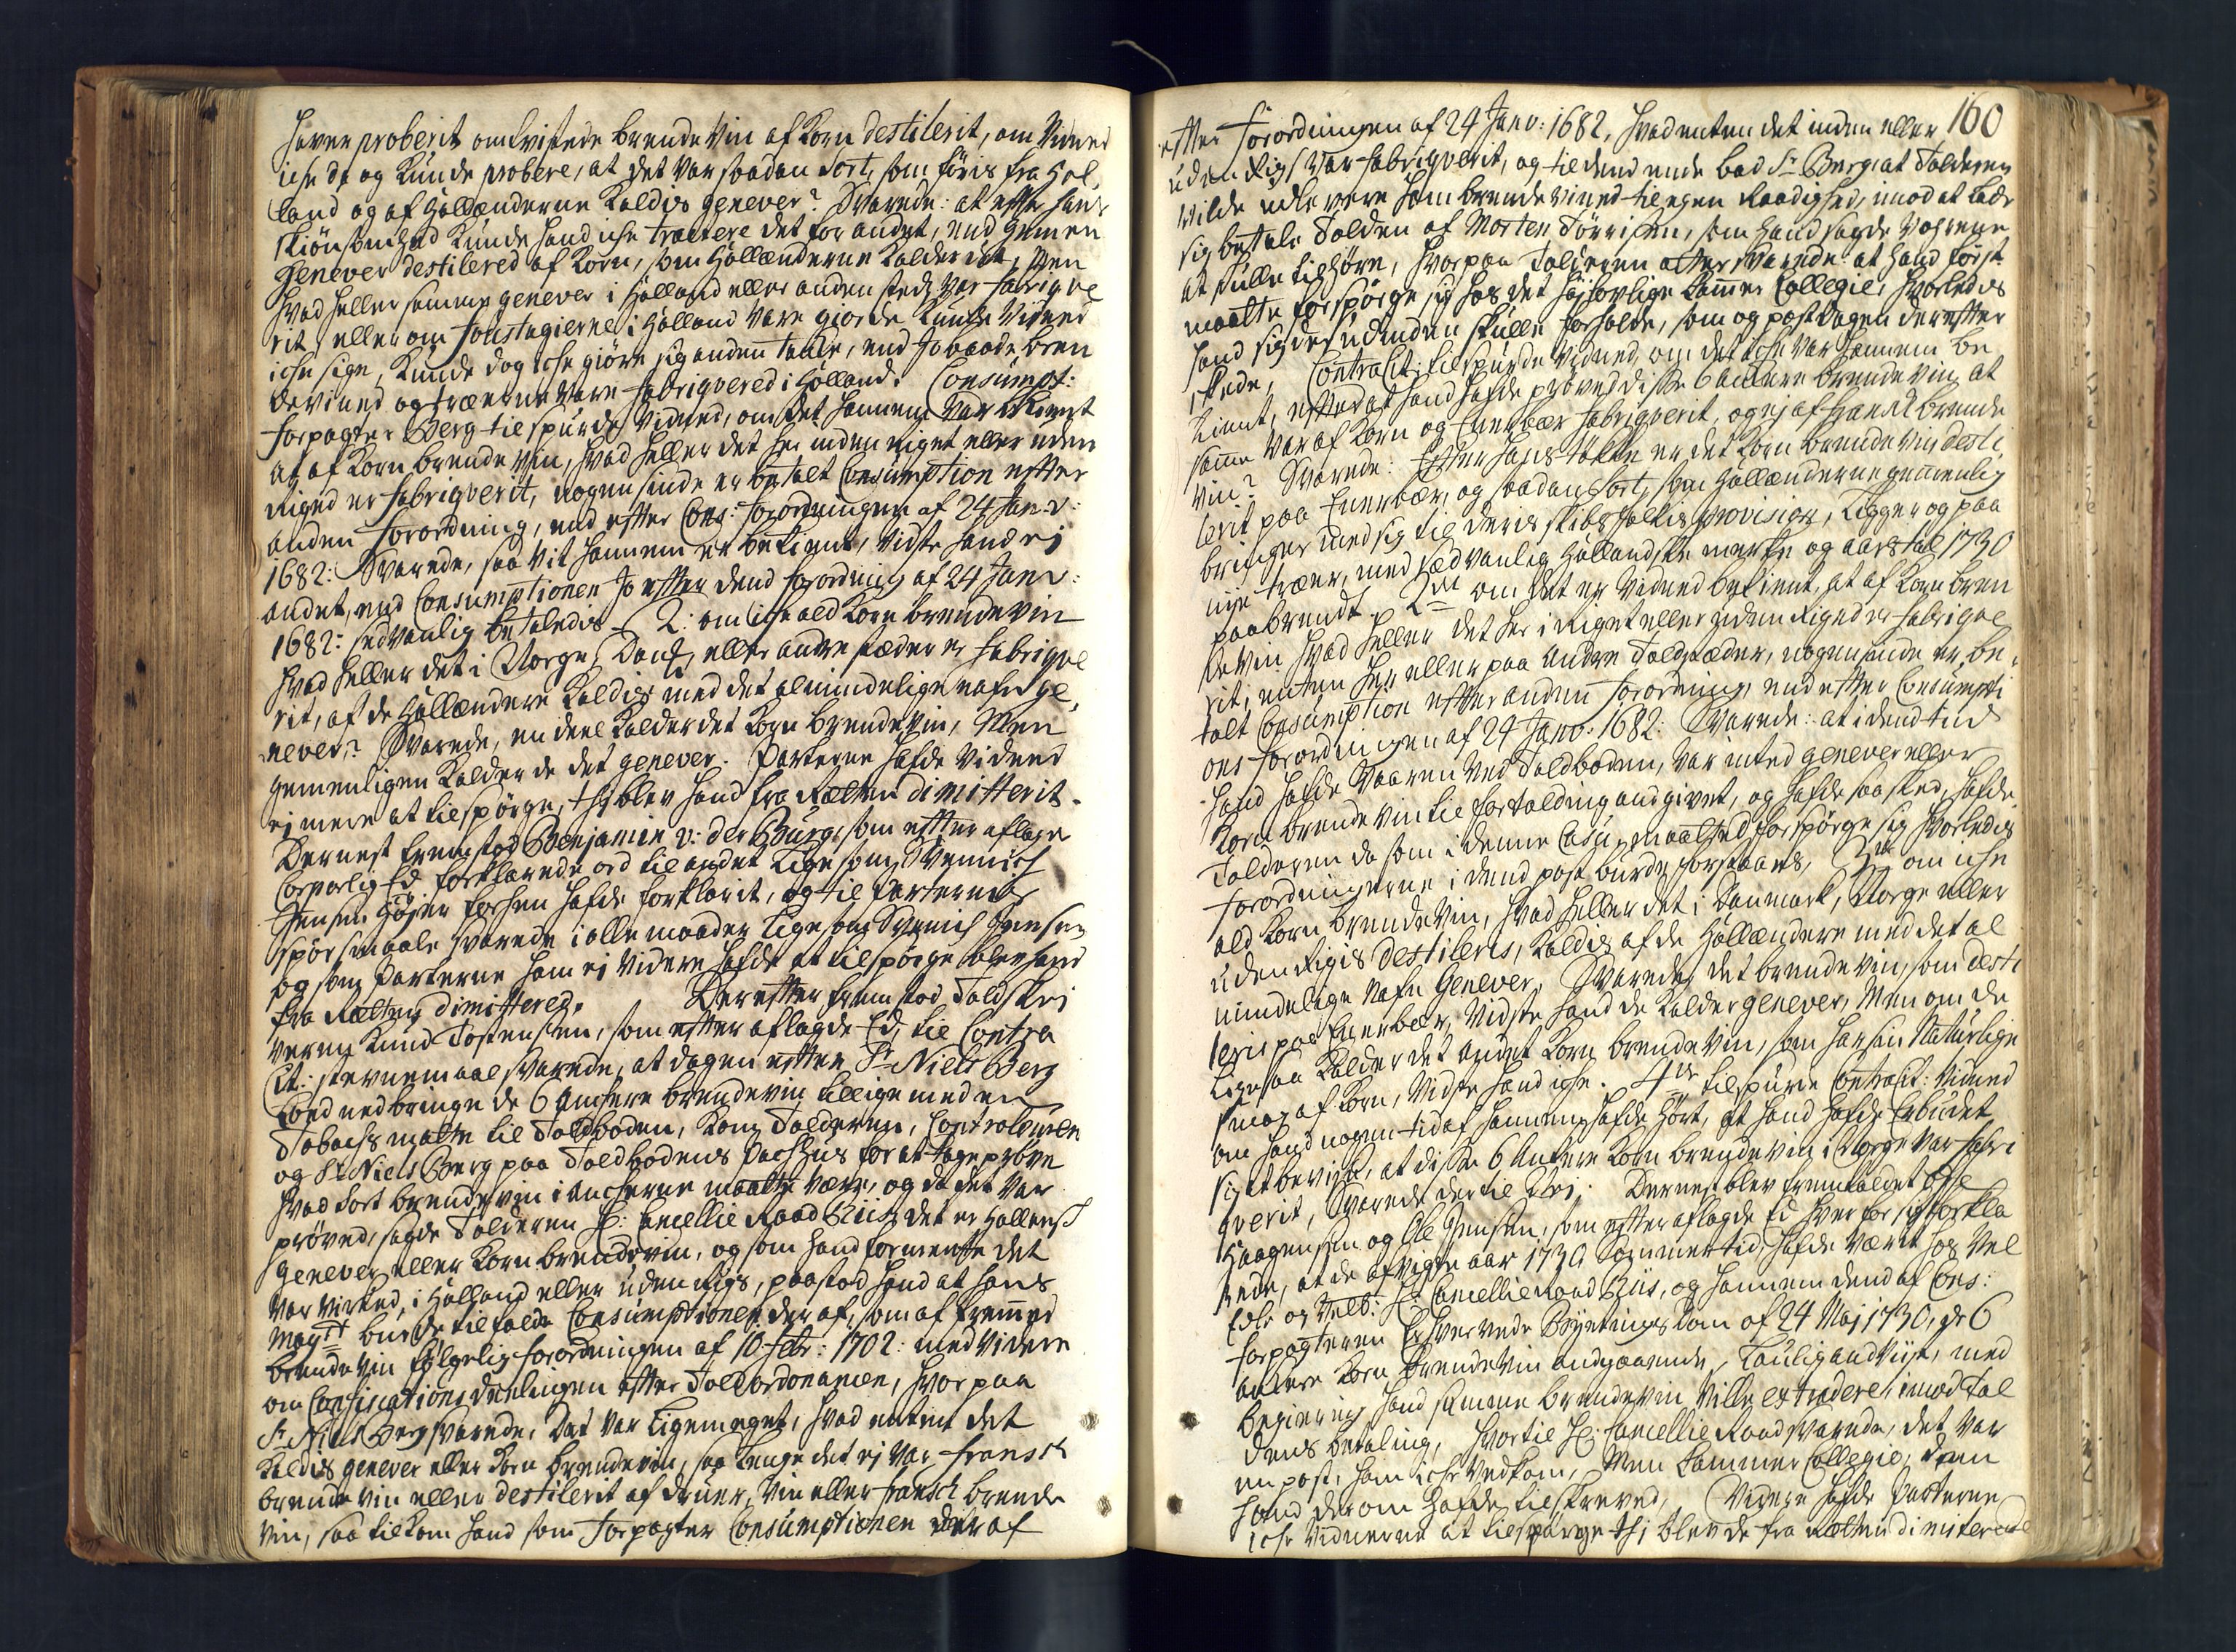 haver proberit omtvistede brendeviin af Korn destilerit, om Vidned
iche da og kunde probere, at det var saadan sort, som føris fra Hol,
land og af Hollænderne kaldis genever? Svarede: at efter hans
skiønsomhed kunde hand iche tractere det for andet, end gemen
genever destilered af Korn, som Hollænderne kalder det, Men
hvad heller samme genever i Holland eller anden stedz var fabriqve
rit, eller om foustagierne i Holland vare giorde kunde Vidned
iche sige, kunde dog iche giøre sig anden tanke, end jo baade bren
devined og træerne vare fabriqvered i Holland. Consumpt:
forpagter Berg tilspurde Vidned, om det hannem var bekient
at af Korn brendeviin, hvad heller det her inden riget eller uden
Riged er fabriqverit, nogensinde er betalt Consumption efter
anden forordning, end efter Cons: forordningen af 24 Janv:
1682: Svarede, saa vit hannem er bekient, vidste hand ej
andet, end Consumptionen jo efter dend forordning af 24 Janv:
1682: sedvanlig betaledis. 2: om iche ald Korn brendeviin
hvad heller det i Norge, Danm, eller andre stæder er fabriqve
rit, af de Hollændere kaldis med det almindelige nafn ge,
never? Svarede, en deel kalder det Korn brendeviin, Men
gemenligen kalder de det genever. Parterne hafde Vidned
ej mere at tilspørge, thj blev hand fra Rætten dimitterit.
Dernest fremstod Benjamin v: der Burg, som efter aflagde
Corporlig Ed forklarede ord til andet lige som Svennich
Jensen Høyer forhen hafde forklarit, og til Parternis
spørsmaale svarede i alle maader lige som Svenich Jensen
og som Parterne ham ej videre hafde at tilspørge blev hand
fra Rætten dimittered. Derefter fremstod Toldskri
veren Knud Tostensen, som efter aflagde Ed, til Contra
Cit: stevnemaal svarede, at dagen efter Sr Niels Berg
lod nedbringe de 6 anchere brendeviin tillige med en
Tobachs matte til Toldboden, kom Tolderen, Controleuren
og Sr Niels Berg paa Toldbodens Pachhus for at tage prøve
hvad sort brendeviin i ancherne maatte være, og da det var
prøved, sagde Tolderen Hr: Cancellie Raad Riis det er Hollensch
genever eller Korn brendeviin, og som hand formente det
var virked, i Holland eller uden Rigs, paastod hand at hans
Maytt burde tilfalde Consumptionen der af, som af fremmed
brendeviin følgelig forordningen af 10 Febr: 1702: med videre
om Confiscations deelingen efter Toldordonancen, hvor paa
Sr Niels Berg svarede, Det var ligemeget, hvad enten det
kaldis genever eller Korn brendeviin, saa lenge det ej var fransch
brendeviin eller destilerit af druer, Viin eller fransch brende
viin, saa tilkom hand som forpagter Consumptionen der af
160
efter forordningen af 24 Janv: 1682, hvad enten det inden eller
uden Rigs var fabriqverit, og til dend ende bad Sr Berg at Tolderen
vilde udlevere ham brendevined til egen Raadighed, imod at lade
sig betale Tolden af Morten Tørrisen, som hand sagde Vahrene
at skulle tilhøre, hvorpaa Tolderen atter svarede: at hand først
maatte forspørge sig hos det Høylovlige Cammer Collegie, hvorledis
hand sig desudinden skulle forholde, som og postdagen derefter
skede, ContraCit: tilspurde Vidned, om det iche var hannem be
kient, efter at hand hafde prøved disse 6 anchere brendeviin, at
samme var af Korn og Enerbær fabriqverit, og ej af fransk brende
viin? Svarede: Efter hans tykke er det Korn brendeviin desti,
lerit paa Enerbær, og saadan sort, som Hollænderne gemenlig
bringer med sig til deris skibsfolkis provision, ligger og paa
nye træer, med sædvanlig Hollandske merke og aars tal 1730
paabrendt. 2det om det er Vidned bekient, at af Korn bren
deviin hvad heller det her i Riget eller uden Riged er fabriqve
rit, enten her eller paa andre Toldstæder, nogensinde er be,
talt Consumption efter anden forordning, end efter Consumpti
ons forordningen af 24 Janv: 1682: Svarede: at i dend tid
hand hafde vaaren ved Toldboden, var inted genever eller
Korn brendeviin til fortolding andgivet, og hafde saa sked, hafde
Tolderen da som i denne Casu, maatted forspørge sig hvorledis
forordningerne i dend post burde forstaaes, 3die om iche
ald Korn brendeviin, hvad heller det i Danmark, Norge eller
uden Rigis destileris, kaldis af de Hollændere med det al
mindelige Nafn Genever, Svarede, det brendeviin, som desti
leris paa Enerbær, vidste hand de kalder genever, Men om de
ligesaa kalder det andet Korn brendeviin, som har sin Naturlige
smag af Korn, vidste hand iche. 4de tilspurde ContraCit: Vidned
om hand nogen tid af hannem hafde hørt, at hand hafde Erbudet
sig at bevise, at disse 6 Ankere Korn brendeviin i Norge var fabri
qverit, Svarede dertil Nej. Dernest blev fremkaldet Ole
Haagensen og Ole Jensen, som efter aflagde Ed hver for sig forkla
rede, at de afvigte aar 1730 Sommertid, hafde værit hos Vel
Edle og Velb: Hr: Cancellieraad Riis, og hannem dend af Cons:
forpagteren Erhvervede Byetings Dom af 24 Maj 1730, de 6
ankere Korn brendeviin andgaaende, lovlig andviist, med
begiering hand samme brendeviin ville extradere, imod Tol
dens betaling, hvortil Hr: Cancellie Raad svarede, det var
en post, ham iche vedkom, Men Cammer Collegio, som
hand derom hafde tilskreved, Videre hafde Parterne
iche Vidnerne at tilspørge thj blev de fra Rætten dimitterede